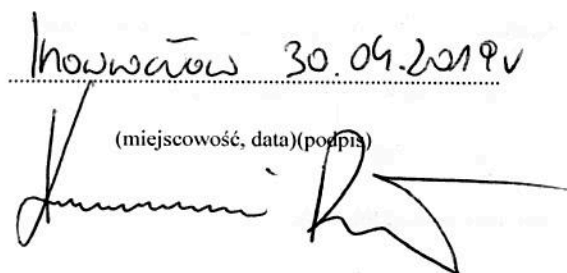 Inowrocław 30.04.2019r
(miejscowość, data)(podpis)